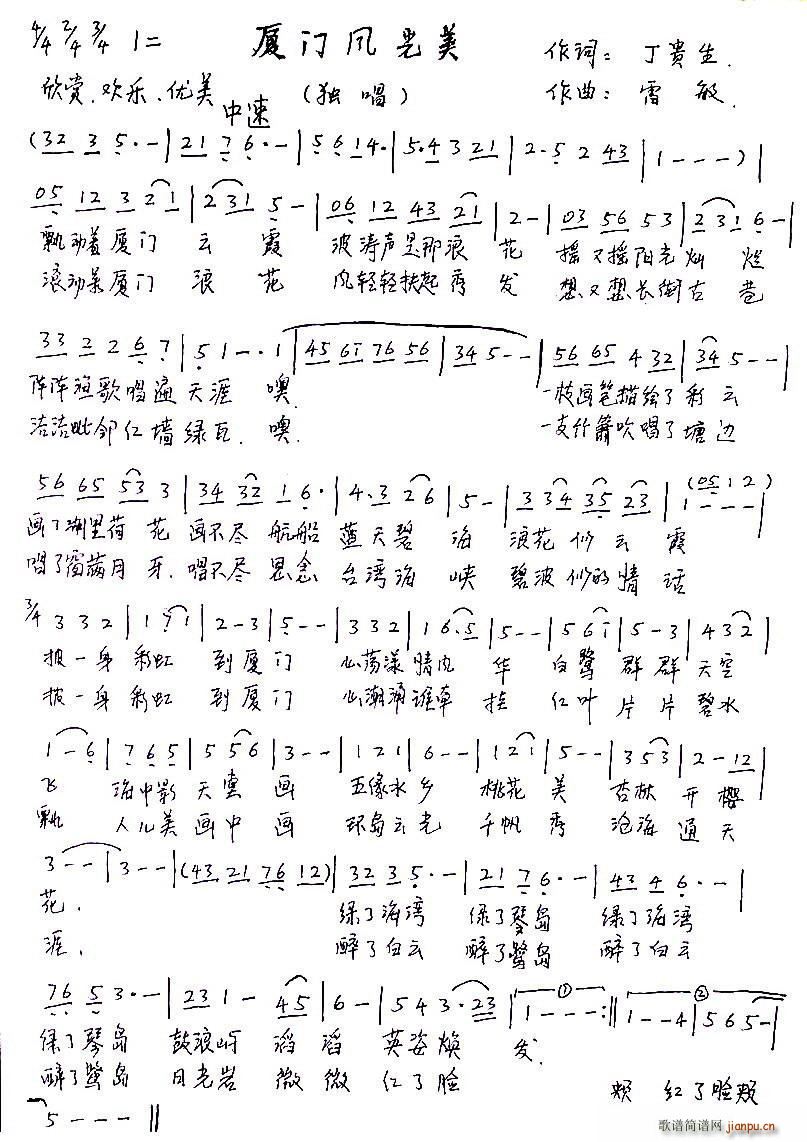 4/4 2/4 3/4 1= 厦门风光美 作词：丁贵生
欣赏、欢乐、优美 中速 （独唱） 作曲：雷敏
(32 3 5·-|21 7 6·-|5 6 14·|5·4 3 21|2·5 2 43|1---)|
05 12 3 21|231 5-|06 12 43 21|2-|03 56 53|231 6-|
飘动着厦门云霞 波涛声是那浪花 摇又摇阳光灿烂
滚动着厦门浪花 风轻轻扶起秀发 想又想长街古巷
33 2 2 6 7|5 1--·1|45 61 76 56|34 5--|56 65 4 32|34 5--|
阵阵渔歌唱遍天涯 噢. 一枝画笔描绘了彩云
洁洁毗邻红墙绿瓦. 噢. 一支竹箫吹唱了塘边
56 65 53 3|34 32 1 6·|4·3 26|5-|334 35 23|1---|(05 12)
画了湖里荷花 画不尽航船 蓝天碧海 浪花似云霞
唱了窗满月牙. 唱不尽思念 台湾海峡 碧波似的情话
3/4 332|171|2-3|5--|332|16·5|5--|561|5-3|432|
披一身彩虹到厦门 心荡漾情内华 白鹭群群天空
披一身彩虹到厦门 心潮涌谁牵挂 红叶片片碧水
1-6|765|556|3--|121|6--|121|5--|353|2-12|
飞 海中影天空画 五缘水乡桃花美 杏林开樱
飘 人儿美画中画 环岛云光千帆秀 沧海通天
3--|3--|(43 21 76 12)|32 3 5·-|21 7 6·-|43 4 6·-|
花. 绿了海湾 绿了琴岛 绿了海湾
涯. 醉了白云 醉了鹭岛 醉了白云
76 5 3·-|23 1- 45|6-|543·23|①1---:||②1--4|565-|
绿了琴岛 鼓浪屿滔滔英姿焕发.
醉了鹭岛 日光岩微微红了脸 颊 红了脸颊
5---||
歌谱简谱网
jianpu.cn